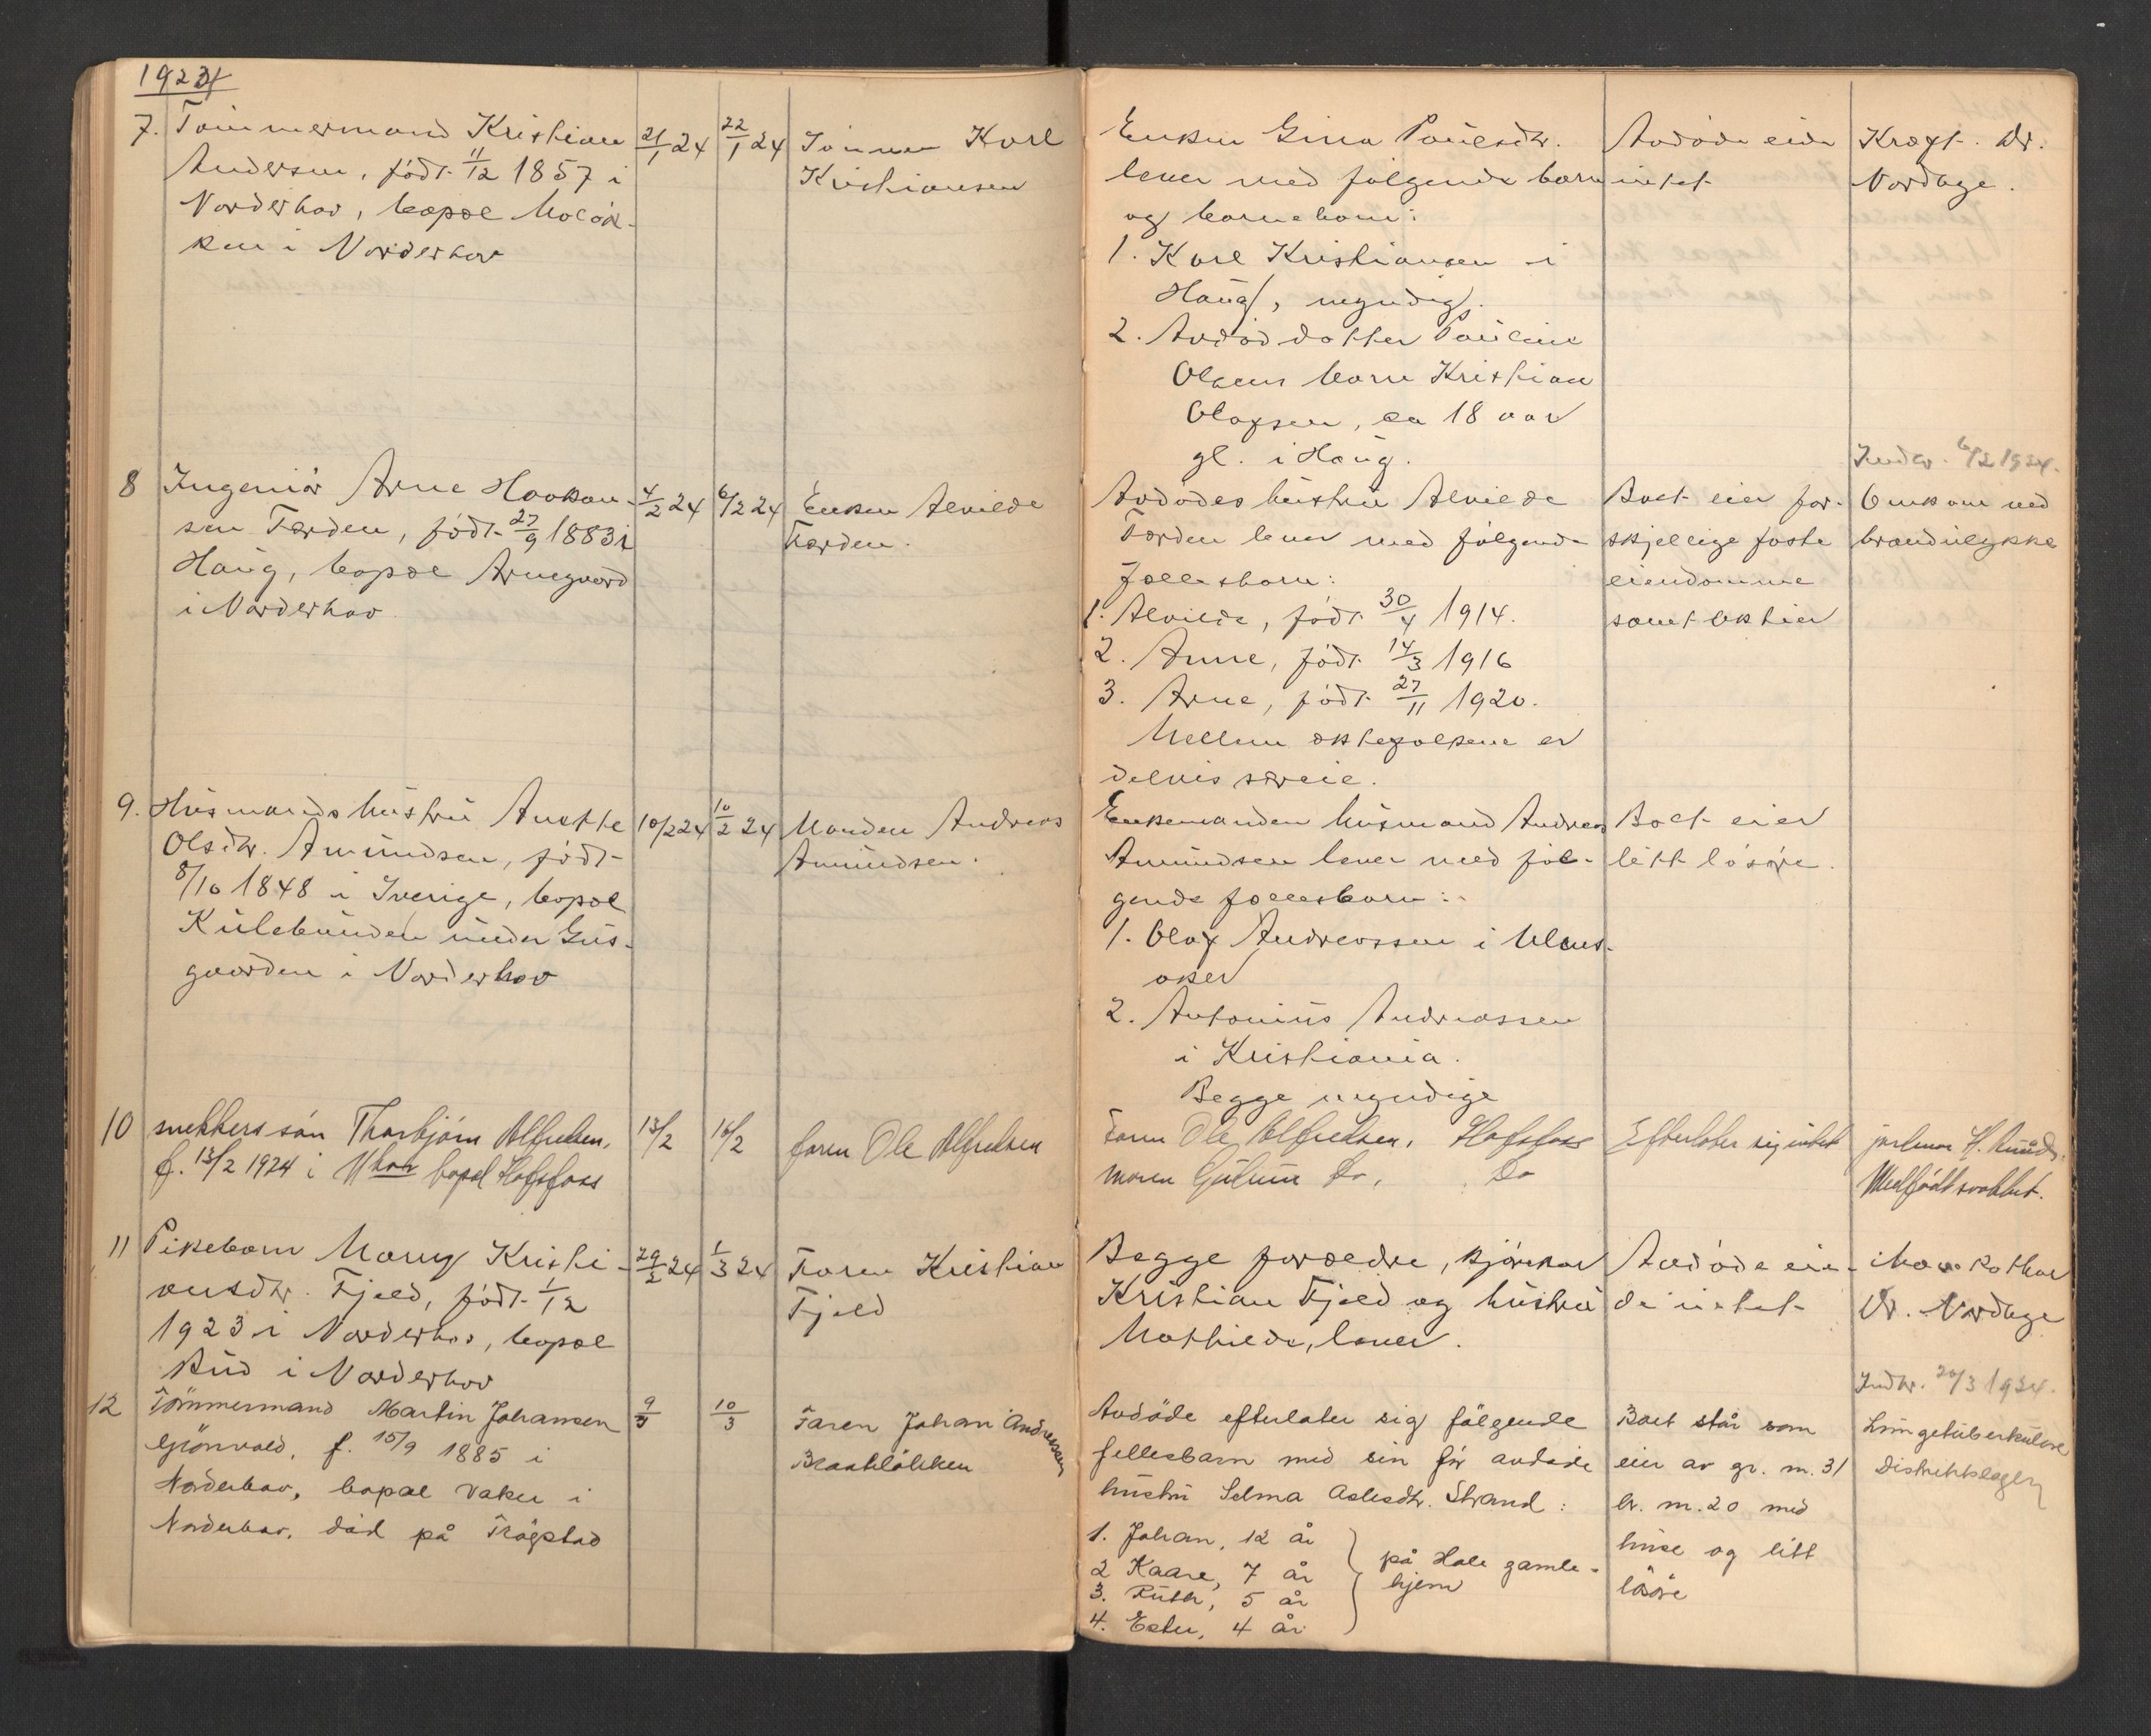 1924
7. Tømmermand Kristian
Andersen, født 11/12 1857 i
Norderhov, bopæl
i Norderhov
21/1 24
22/1 24
Sønnen Karl
Kristiansen
Enken Gina Paulsdtr.
lever med følgende barn
og barnebarn:
1. Karl Kristiansen i
Haug, myndig.
2. Avdød datter Pauline
Olsens barn Kristian
Olafsen, ca 18 aar
gl. i Haug.
Avdøde eide
intet
Kræft. Dr.
Nordage.
8 Ingeniør Arne Haakon-
sen Færden, født 27/9 1883 i
Haug, bopæl Arnegaard
i Norderhov
4/2 24
6/2 24
Enken Alvilde
Færden.
Avdødes hustru Alvilde
Færden lever med følgende
fællesbarn:
1. Alvilde, født 30/4 1914.
2. Anne, født 14/3 1916
3. Arne, født 27/11 1920.
Mellem ektefolkene er
delvis særeie.
Boet eier for-
skjellige faste
eiendomme
samt aktier
Indbr. 6/2 1924.
Omkom ved
brandulykke
9. Husmandshustru Anette
Olsdtr. Amundsen, født
8/10 1848 i Sverige, bopæl
Kulebunden under Gus-
gaarden i Norderhov
10/2 24
10/2 24
Manden Andreas
Amundsen.
Enkemanden husmand Andreas
Amundsen lever med føl-
gende fællesbarn:
1. Olaf Andreassen i Ulens-
aker
2. Antonius Andreassen
i Kristiania.
Begge myndige
Boet eier
litt løsøre.
10 snekkers søn Thorbjørn Alfredsen,
f. 13/2 1924 i Nhov bopæl Hofsfoss
13/2
16/2
faren Ole Alfredsen
Faren Ole Alfredsen, Hofsfoss
moren Do, Do
Efterlater sig intet
jordmor H. Ruud.
Medfødt svakhet.
11 Pikebarn Mary Kristi-
ansdtr. Fjeld, født 1/12
1923 i Norderhov, bopæl
Rud i Norderhov
29/2 24
1/3 24
Faren Kristian
Fjeld
Begge forældre, kjørekar
Kristian Fjeld og hustru
Mathilde, lever.
Avdøde ei-
de intet
Mavekathar
Dr. Nordage
12 Tømmermand Martin Johansen
Grønvold, f. 15/9 1885 i
Norderhov, bopæl Vaker i
Norderhov, død på Trøgstad
9/3
10/3
Faren Johan Andreassen
Braateløkken
Avdøde efterlater sig følgende
fellesbarn med sin før avdøde
hustru Selma Aslesdtr. Strand:
1. Johan, 12 år
2 Kaare, 7 år
3. Ruth, 5 år
4. Ester, 4 år
på Hole gamle-
hjem
Boet står som
eier av gr. nr. 31
br. nr. 20 med
huse og litt
løsøre
Indbr. 20/3 1924.
Lungetuberkulose
Distriktslægen